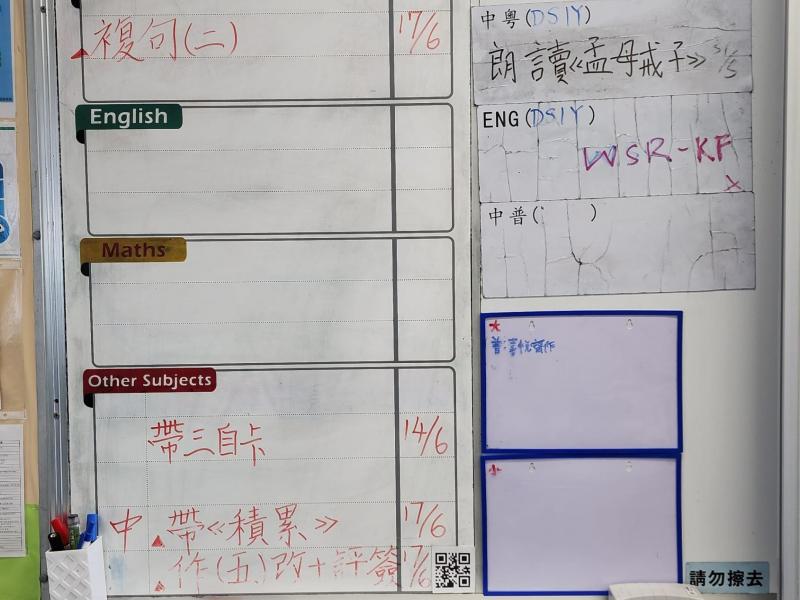 複句(二) 17/6
English
Maths
Other Subjects
帶三自卡 14/6
中 帶《積累》 17/6
作(五)改+評簽 17/6
中粵(DSIY)
朗讀《孟母戒子》 31/5
ENG(DSIY)
WSR-KF
中普( )
大
普:
小
請勿擦去